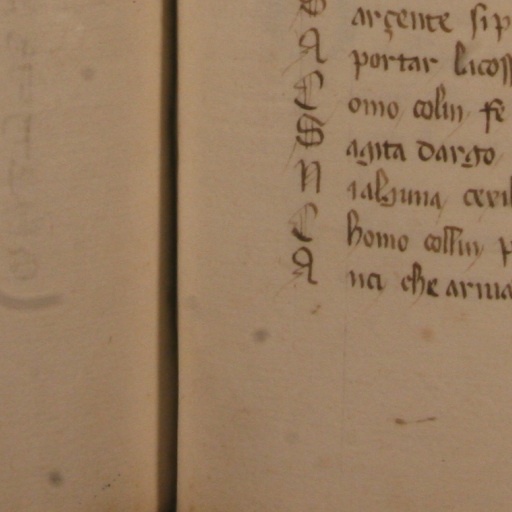 S argente si p
A portar licoss
C omo colui fe
S agita dargo
N ialguna ceril
C homo collui p
A nci che arriua